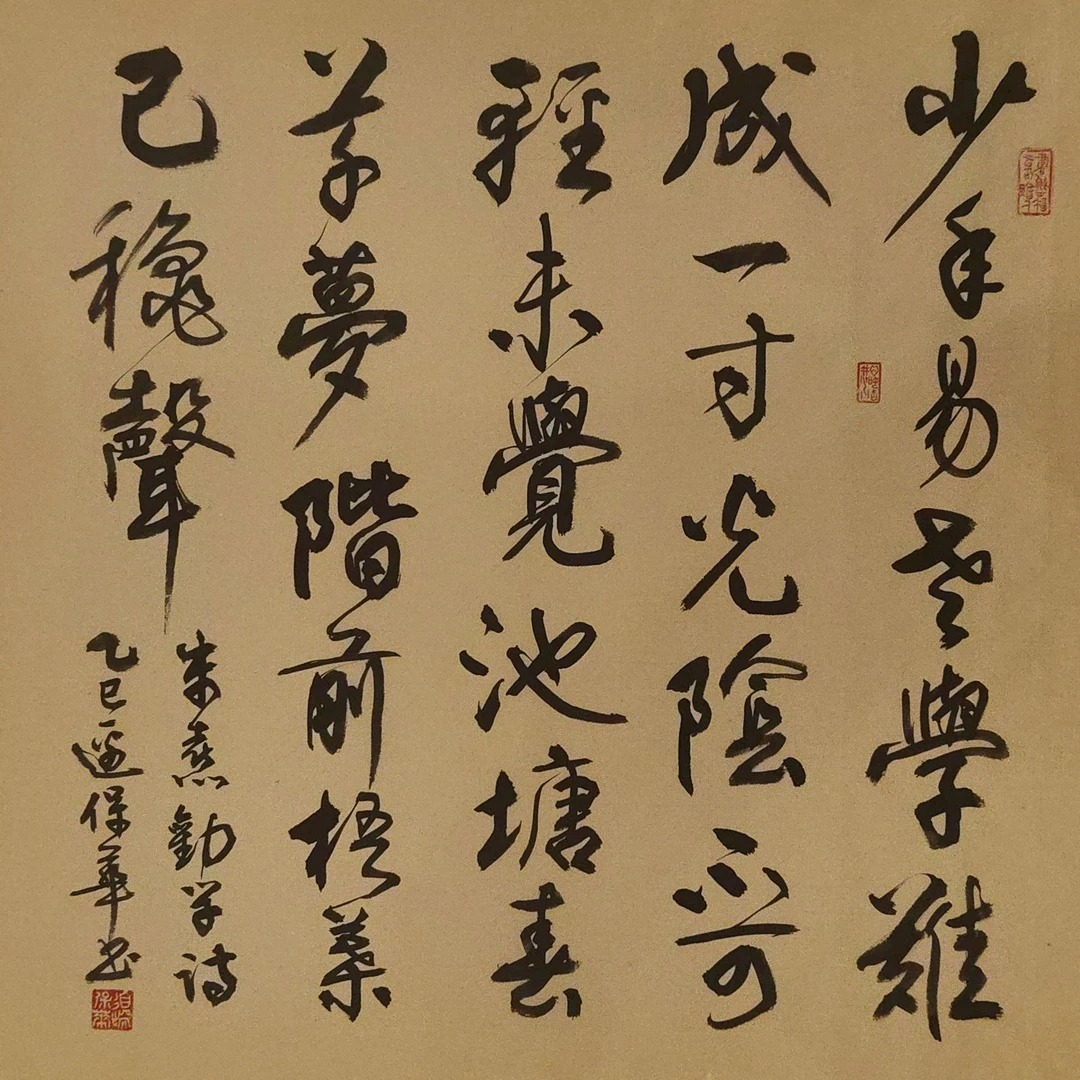 少年易老學難
成一寸光陰不可
輕未覺池塘春
草夢階前梧葉
已穐聲
朱熹勸学詩
乙巳邊保華书